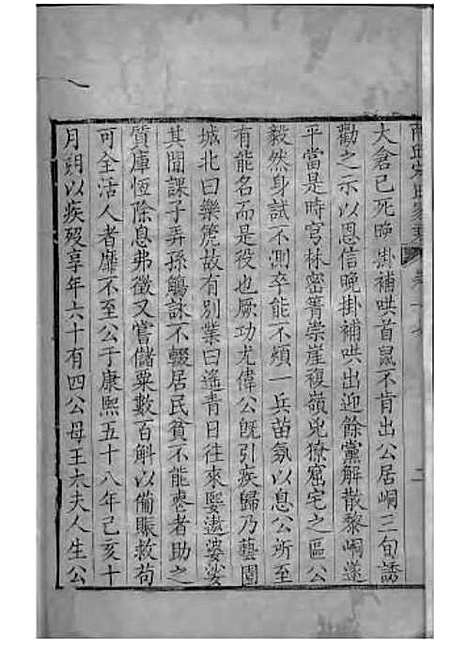 大倉已死晚掛補哄首鼠不肯出公居峒三旬誘
勸之示以恩信晚掛補哄出迎餘黨解散黎峒遂
平當是時穹林密箐崇崖複嶺兇獠窟宅之區公
毅然身試不測卒能不煩一兵苗氛以息公所至
有能名而是役也厥功尤偉公既引疾歸乃藝園
城北曰樂箎故有別業曰遙青日往來嬰遨婆娑
其間課子弄孫觴詠不輟居民貧不能塟者助之
質庫恆除息弗徵又嘗儲粟數百斛以備賑救苟
可全活人者靡不至公于康熙五十八年己亥十
月朔以疾歿享年六十有四公母王太夫人生公
二